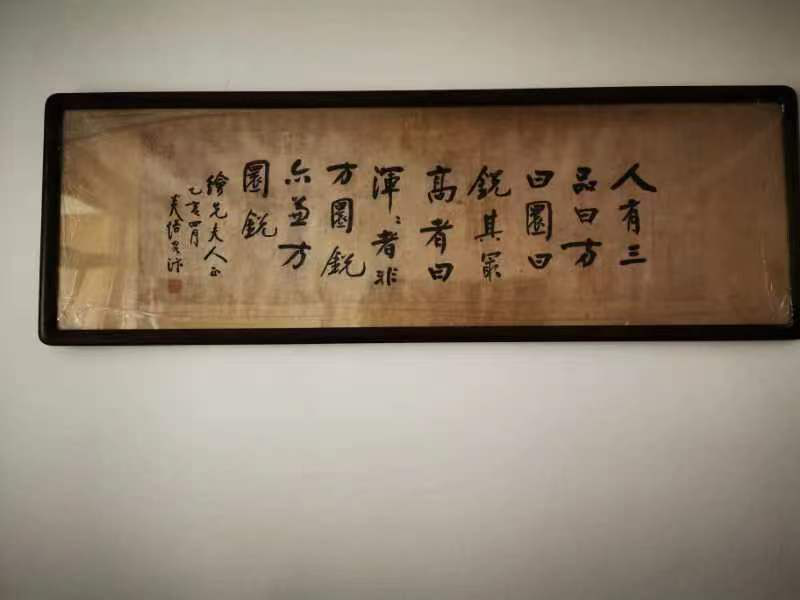 人有三
品曰方
曰圓曰
銳其最
高者曰
渾渾者非
方圓銳
亦兼方
圓銳
繪先夫人正
乙亥四月